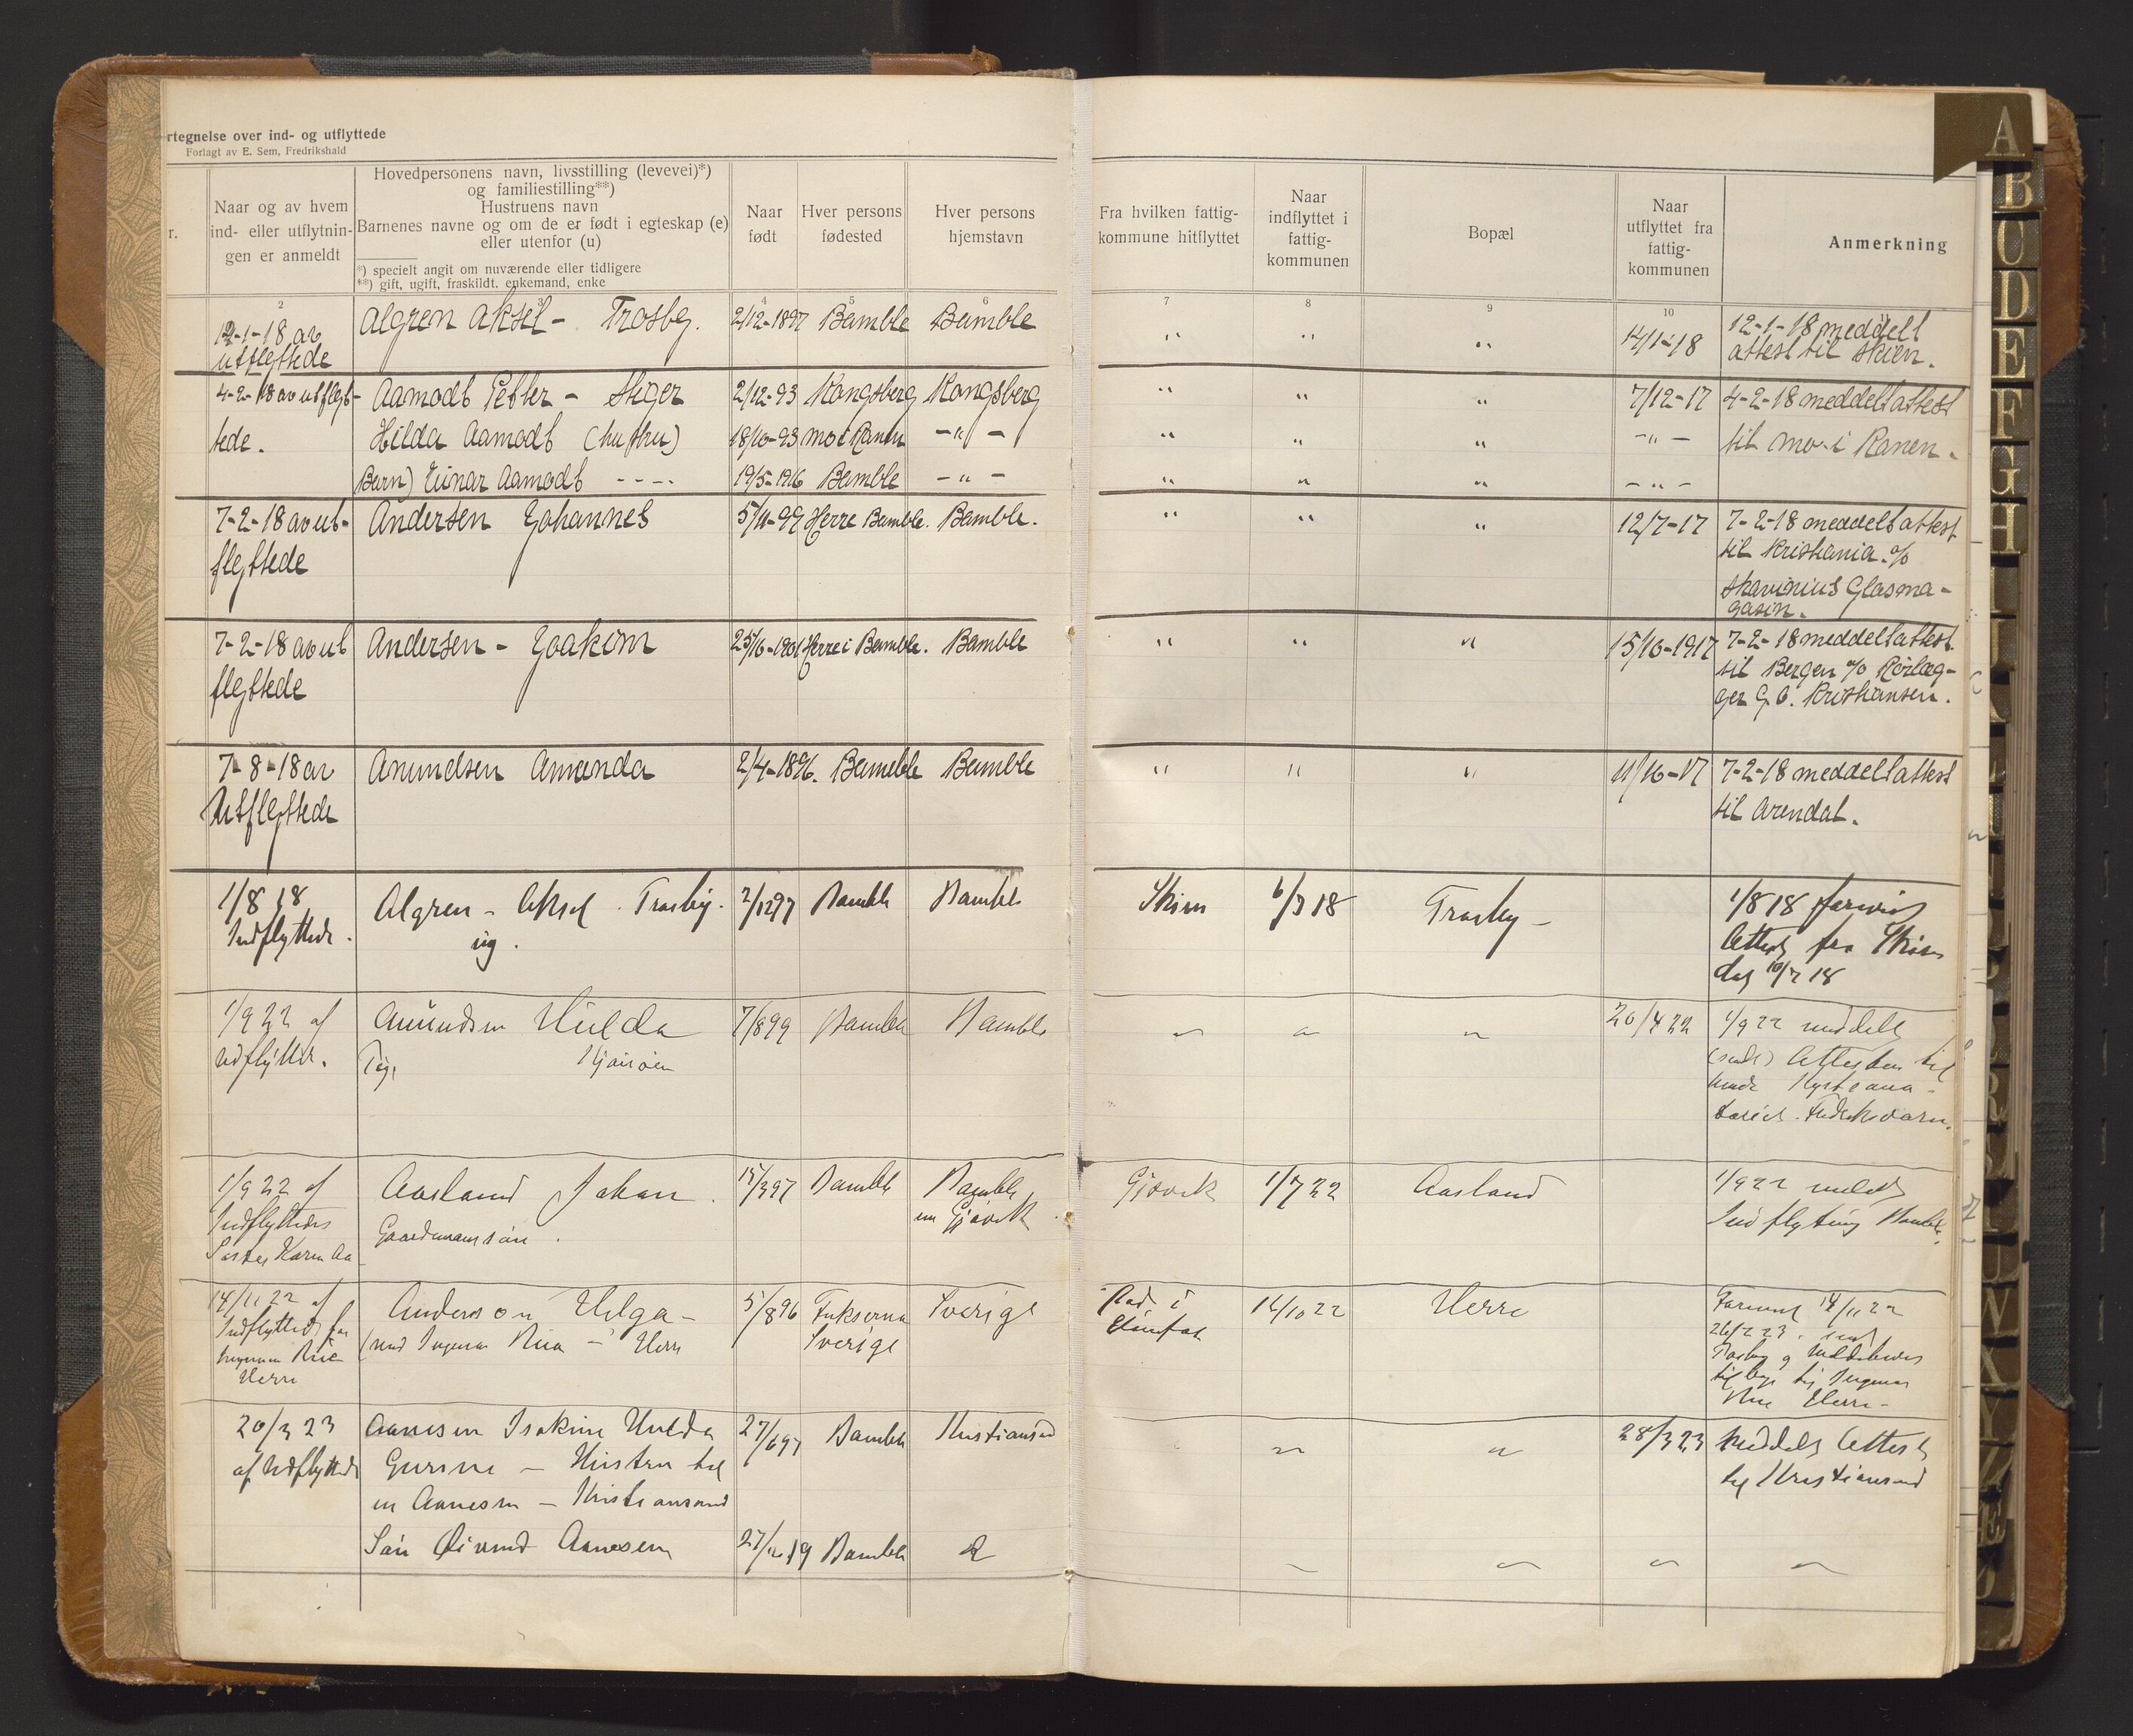 rtegnelse over ind- og utflyttede
Forlagt av E. Sem, Fredrikshald
r.
Naar og av hvem
ind- eller utflytnin-
gen er anmeldt
Hovedpersonens navn, livsstilling (levevei)*)
og familiestilling**)
Hustruens navn
Barnenes navne og om de er født i egteskap (e)
eller utenfor (u)
*) specielt angit om nuværende eller tidligere
**) gift, ugift, fraskildt, enkemand, enke
Naar
født
Hver persons
fødested
Hver persons
hjemstavn
Fra hvilken fattig-
kommune hitflyttet
Naar
indflyttet i
fattig-
kommunen
Bopæl
Naar
utflyttet fra
fattig-
kommunen
Anmerkning
2 3 4 5 6 7 8 9 10 11
12-1-18 av
utflyttede
Algren Aksel - Trosby.
2/12-1897 Bamble Bamble
" " " 14/1-18
12-1-18 meddelt
attest til Skien.
4-2-18 av utflyt-
tede.
Aamodt Petter - Stiger 2/12-93 Kongsberg Kongsberg " " " 7/12-17 4-2-18 meddelt attest
Hilda Aamodt (hustru) 18/10-93 Mo i Ranen -"- " " " -"- til Mo-i Ranen.
Barn) Einar Aamodt ---- 19/5-1916 Bamble -"- " " " -"-
7-2-18 av ut-
flyttede
Andersen Johannes 5/11-99 Herre Bamble. Bamble. " " " 12/7-17
7-2-18 meddelt attest
til Kristiania. c/o
Skavinius Glasma-
gasin.
7-2-18 av ut
flyttede
Andersen - Joakim 25/10-1901 Herre i Bamble. Bamble " " " 15/10-1917
7-2-18 meddelt attest
til Bergen c/o Rørlæg-
ger G. O. Kristiansen.
7-8-18 av
Utflyttede
Amundsen Amanda 2/4-1896. Bamble Bamble " " " 11/10-17
7-2-18 meddelt attest
til Arendal.
1/8 18
Indflyttede.
Algren - Aksel. Trosby.
ug.
2/12 97 Bamble Bamble Skien 6/7 18 Trosby -
1/8 18 forevist
Attest fra Skien
dat 10/7 18
1/9 22 af
udflytter.
Amundsen Hulda
7/8 99 Bamble Bamble " " " 20/4 22
1/9 22 meddelt
(sendt) Attesten til
1/9 22 af
Indflyttedes
Søster Karen Aa
Aasland Johan.
Gaardmannssøn.
15/3 97 Bamble Bamble
nu Gjøvik
Gjøvik 1/7 22 Aasland
1/9 22 meldt
Indflytting Bamble.
14/11 22 af
Indflyttede for
Herre
Anderson Helga -
5/8 96 Fuxerna
Sverige
Sverige
14/10 22 Herre
Forevist 14/11 22
Herre -
20/3 23
af Udflyttede
Aanesen Joakine Hulda
Gurine - Hustru til
en Aanesen - Kristiansand
27/6 97 Bamble Kristiansand
" " 28/3 23
Meddelt Attest
til Kristiansand
Søn Øivind Aanesen
Bamble
" " " "
A
B
C
D
E
F
G
H